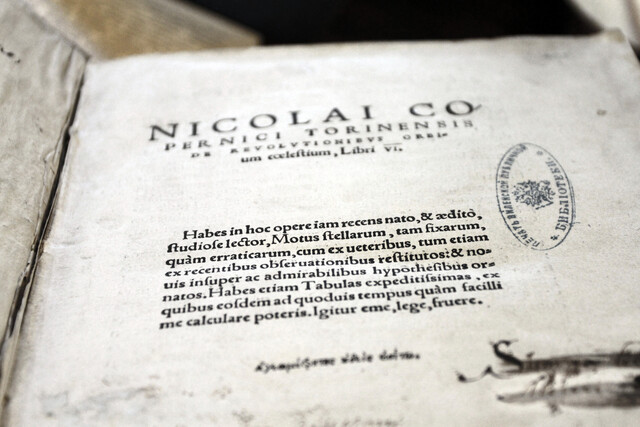 NICOLAI CO
PERNICI TORINENSIS
DE REVOLVTIONIBVS ORBI-
um cœlestium, Libri VI.
Habes in hoc opere iam recens nato, & ædito,
studiose lector, Motus stellarum, tam fixarum,
quàm erraticarum, cum ex ueteribus, tum etiam
ex recentibus obseruationibus restitutos: & no-
uis insuper ac admirabilibus hypothesibus or-
natos. Habes etiam Tabulas expeditissimas, ex
quibus eosdem ad quoduis tempus quàm facilli
me calculare poteris. Igitur eme, lege, fruere.
ПЕЧАТЬ ВИЛЕНСКОЙ ПУБЛИЧНОЙ
БИБЛІОТЕКИ